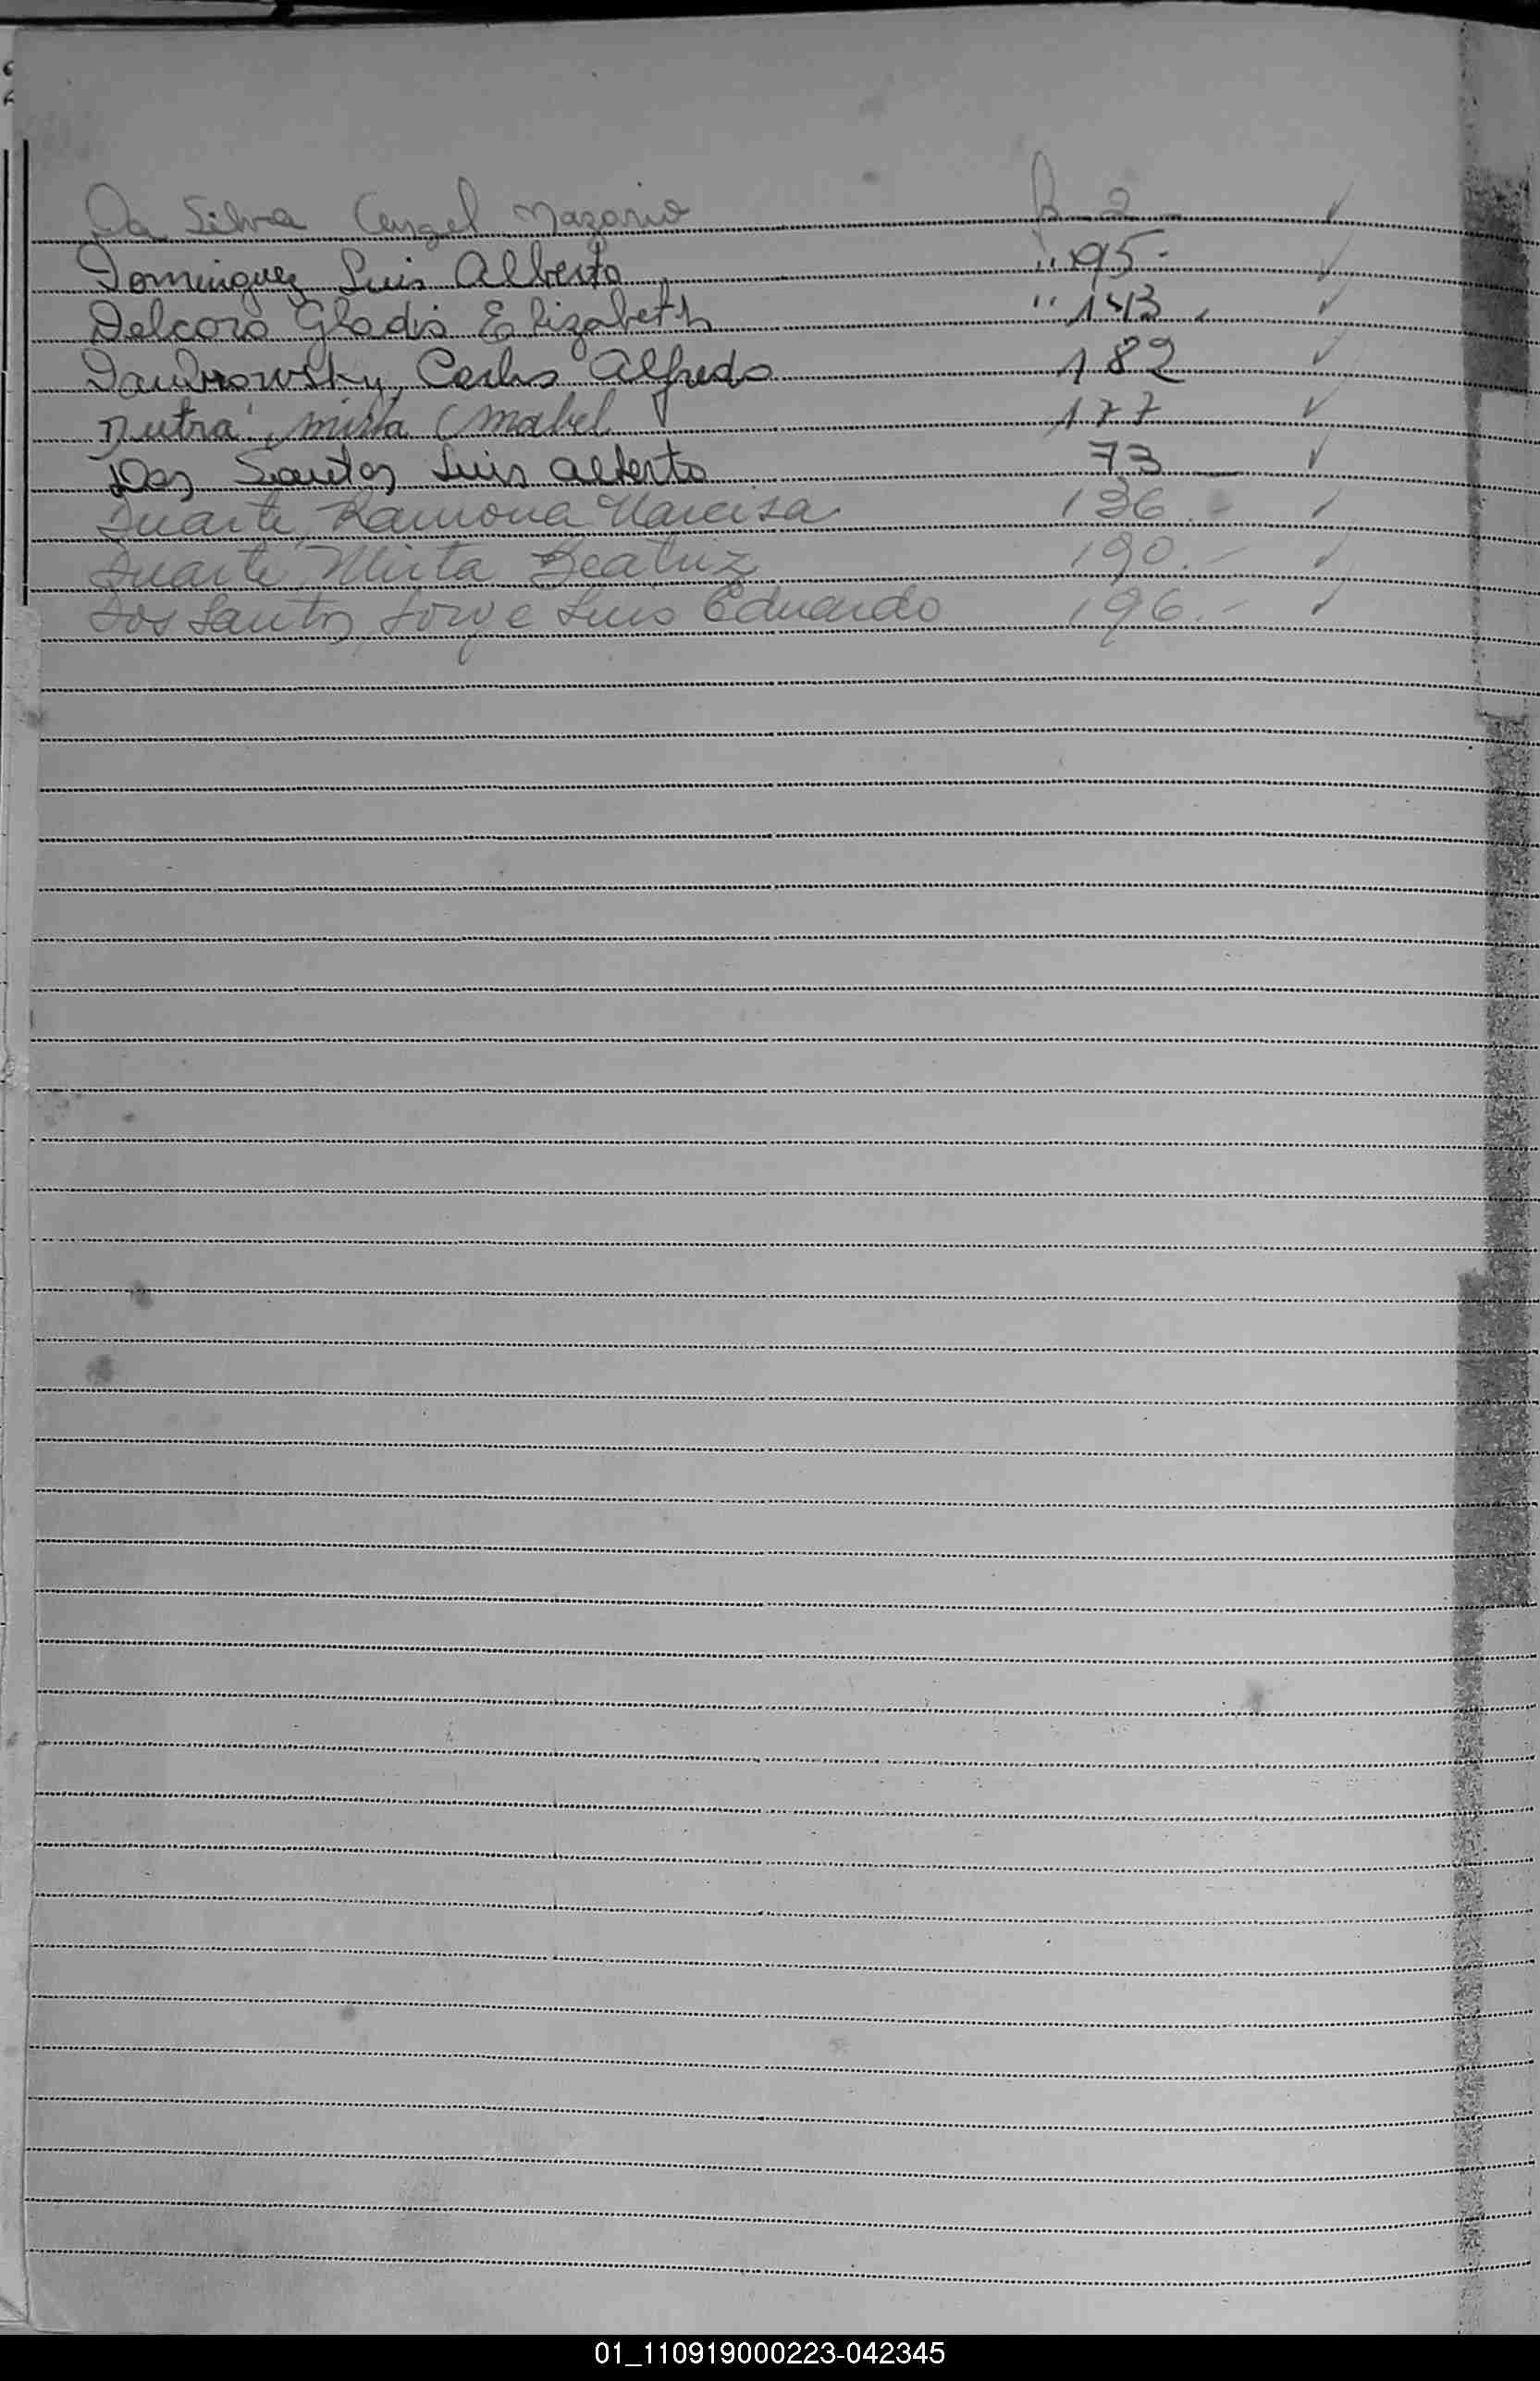 Da Silva Angel Nazario f 2 - ✓
Dominguez Luis Alberto " 95 - ✓
Delcoro Gladis Elizabeth " 143 . ✓
Carlos Alfredo 182 ✓
Dutra, Mirta Mabel 177 ✓
Dos Santos Luis Alberto 73 ✓
Duarte, Ramona Narcisa 136. - ✓
Duarte, Mirta Beatriz 190. - ✓
Dos Santos, Jorge Luis Eduardo 196. - ✓
01_110919000223-042345